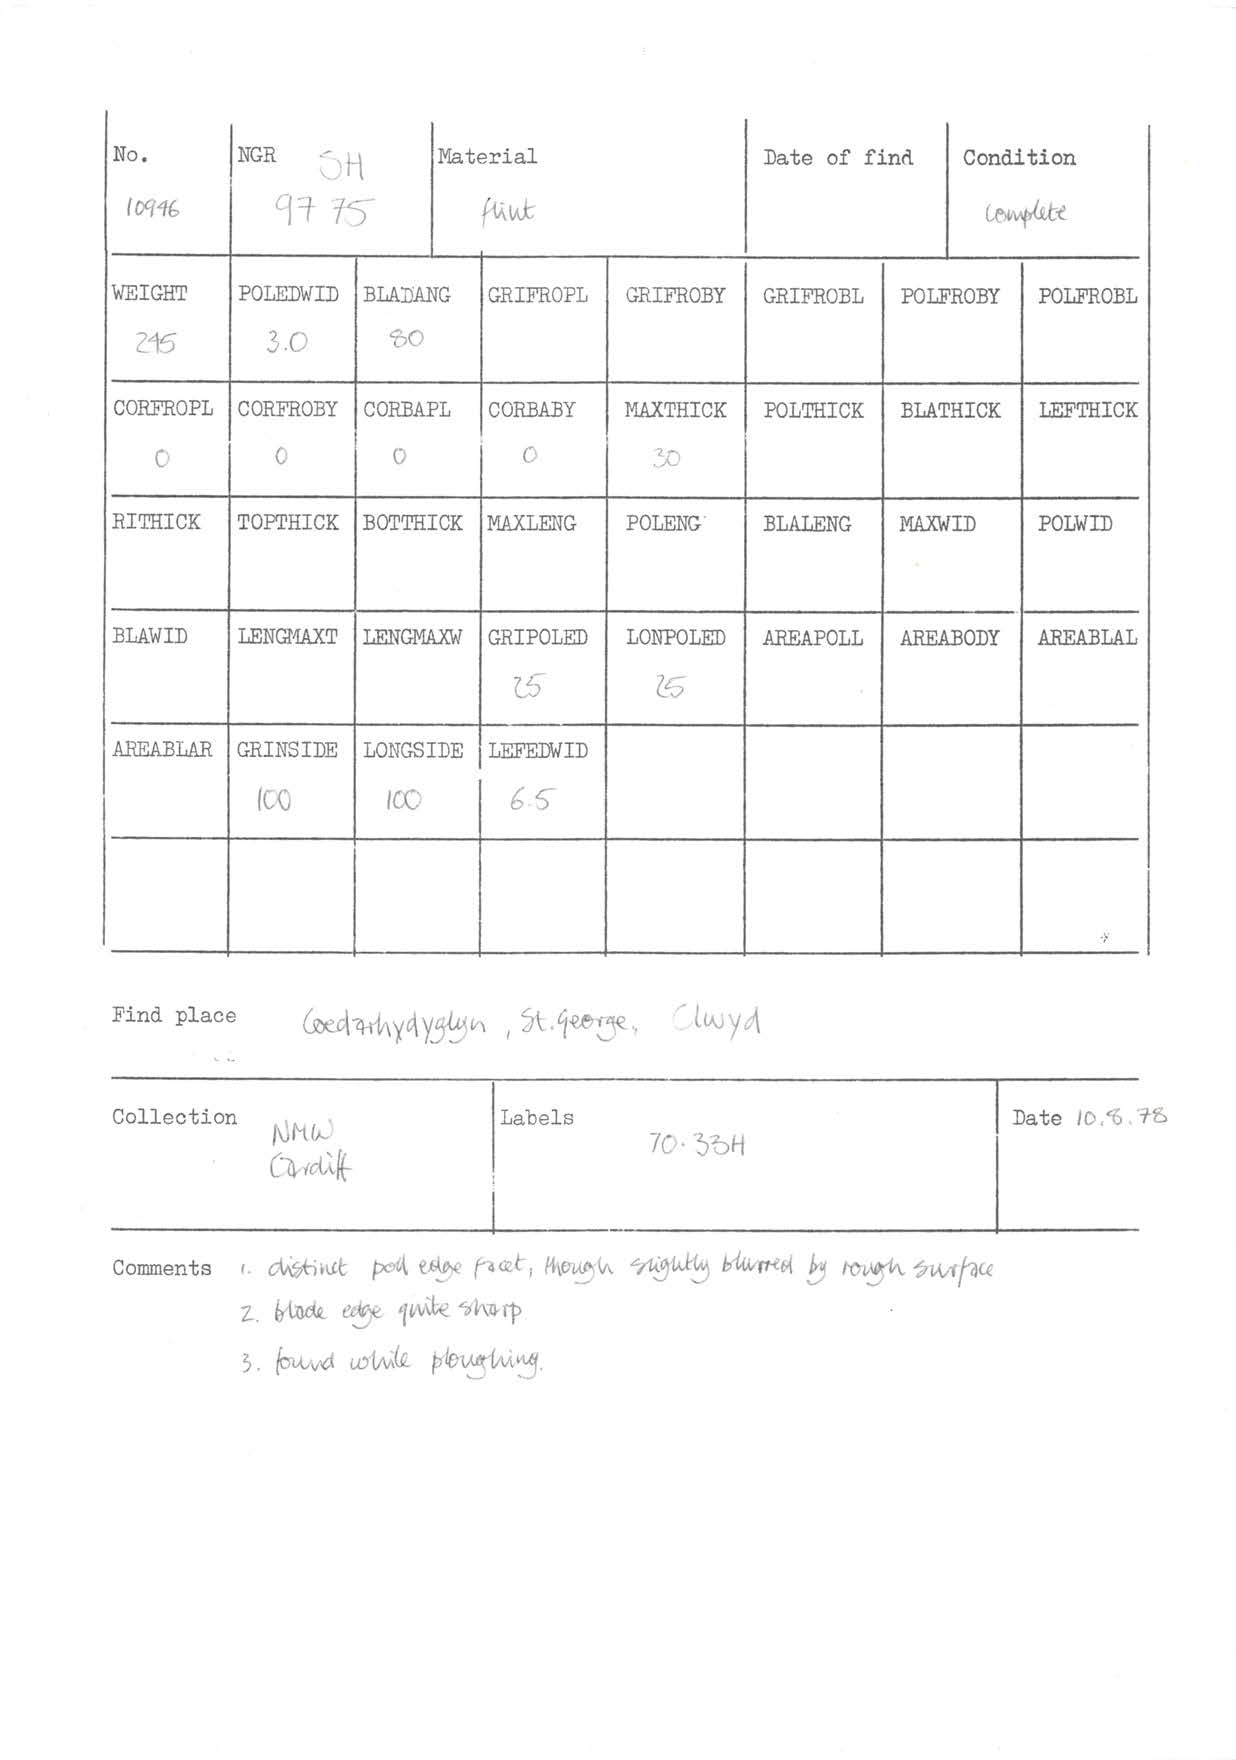 No. NGR SH Material Date of find Condition
10946 97 75 flint complete
WEIGHT POLEDWID BLADANG GRIFROPL GRIFROBY GRIFROBL POLFROBY POLFROBL
245 3.0 80
CORFROPL CORFROBY CORBAPL CORBABY MAXTHICK POLTHICK BLATHICK LEFTHICK
0 0 0 0 30
RITHICK TOPTHICK BOTTHICK MAXLENG POLENG BLALENG MAXWID POLWID
BLAWID LENGMAXT LENGMAXW GRIPOLED LONPOLED AREAPOLL AREABODY AREABLAL
25 25
AREABLAR GRINSIDE LONGSIDE LEFEDWID
100 100 6.5
Find place Coedarhydyglyn, St. George, Clwyd
Collection NMW Labels Date 10.8.78
Cardiff 70.33H
Comments 1. distinct poll edge facet, though slightly blurred by rough surface
2. blade edge quite sharp
3. found while ploughing.